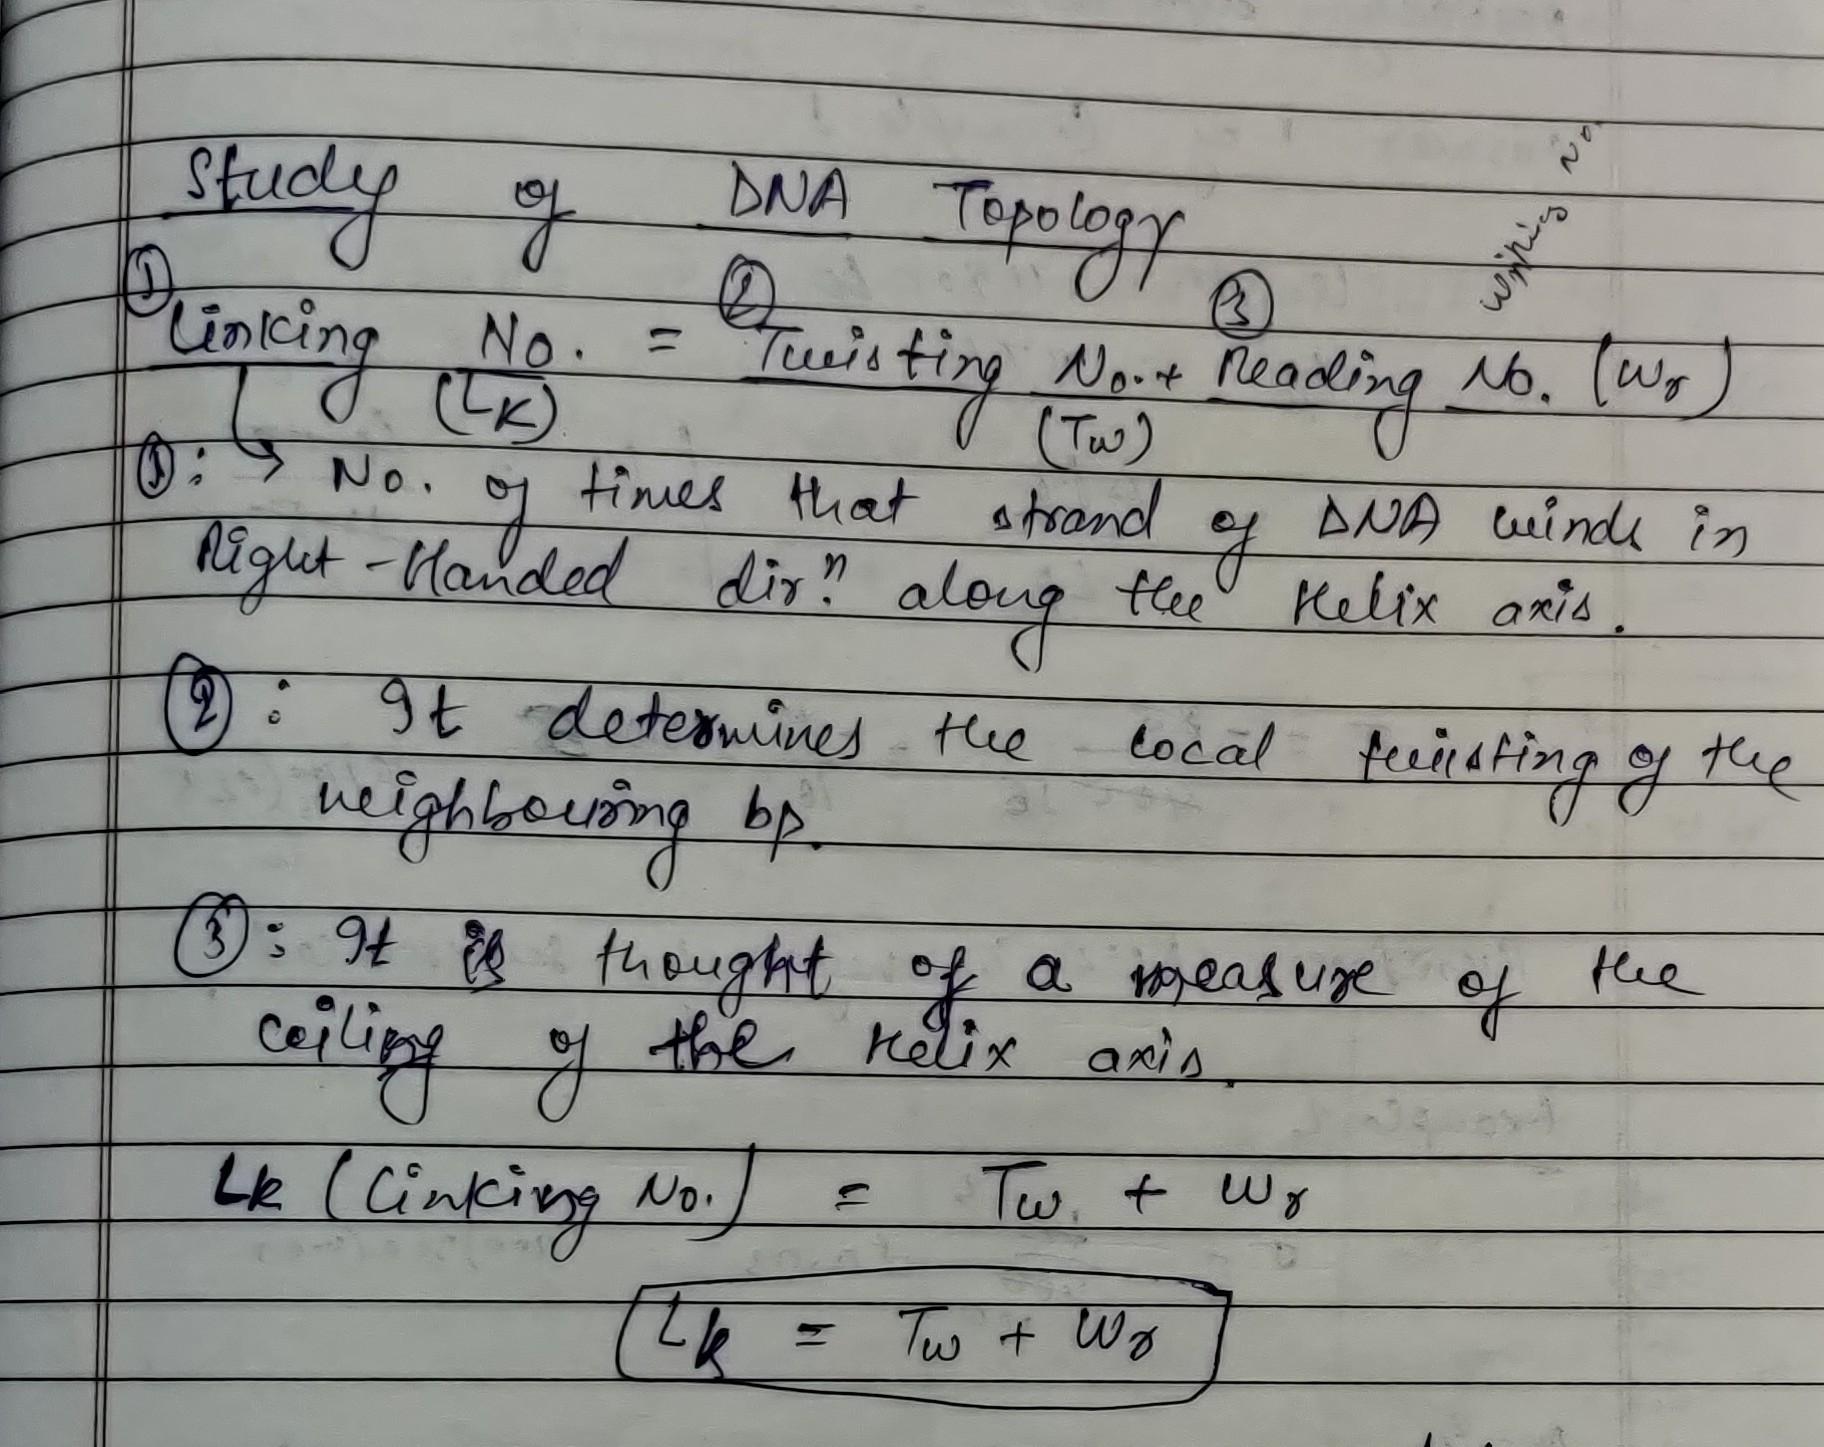 Study of DNA Topology
Writing No.
① ② ③
Linking No. = Twisting No. + Reading No. (Wr)
(LK) (Tw)
①: → No. of times that strand of DNA winds in
Right-Handed dirⁿ. along the Helix axis.
②: It determines the local twisting of the
neighbouring bp.
③: It is thought of a measure of the
coiling of the Helix axis.
Lk (Linking No.) = Tw + Wr
Lk = Tw + Wr